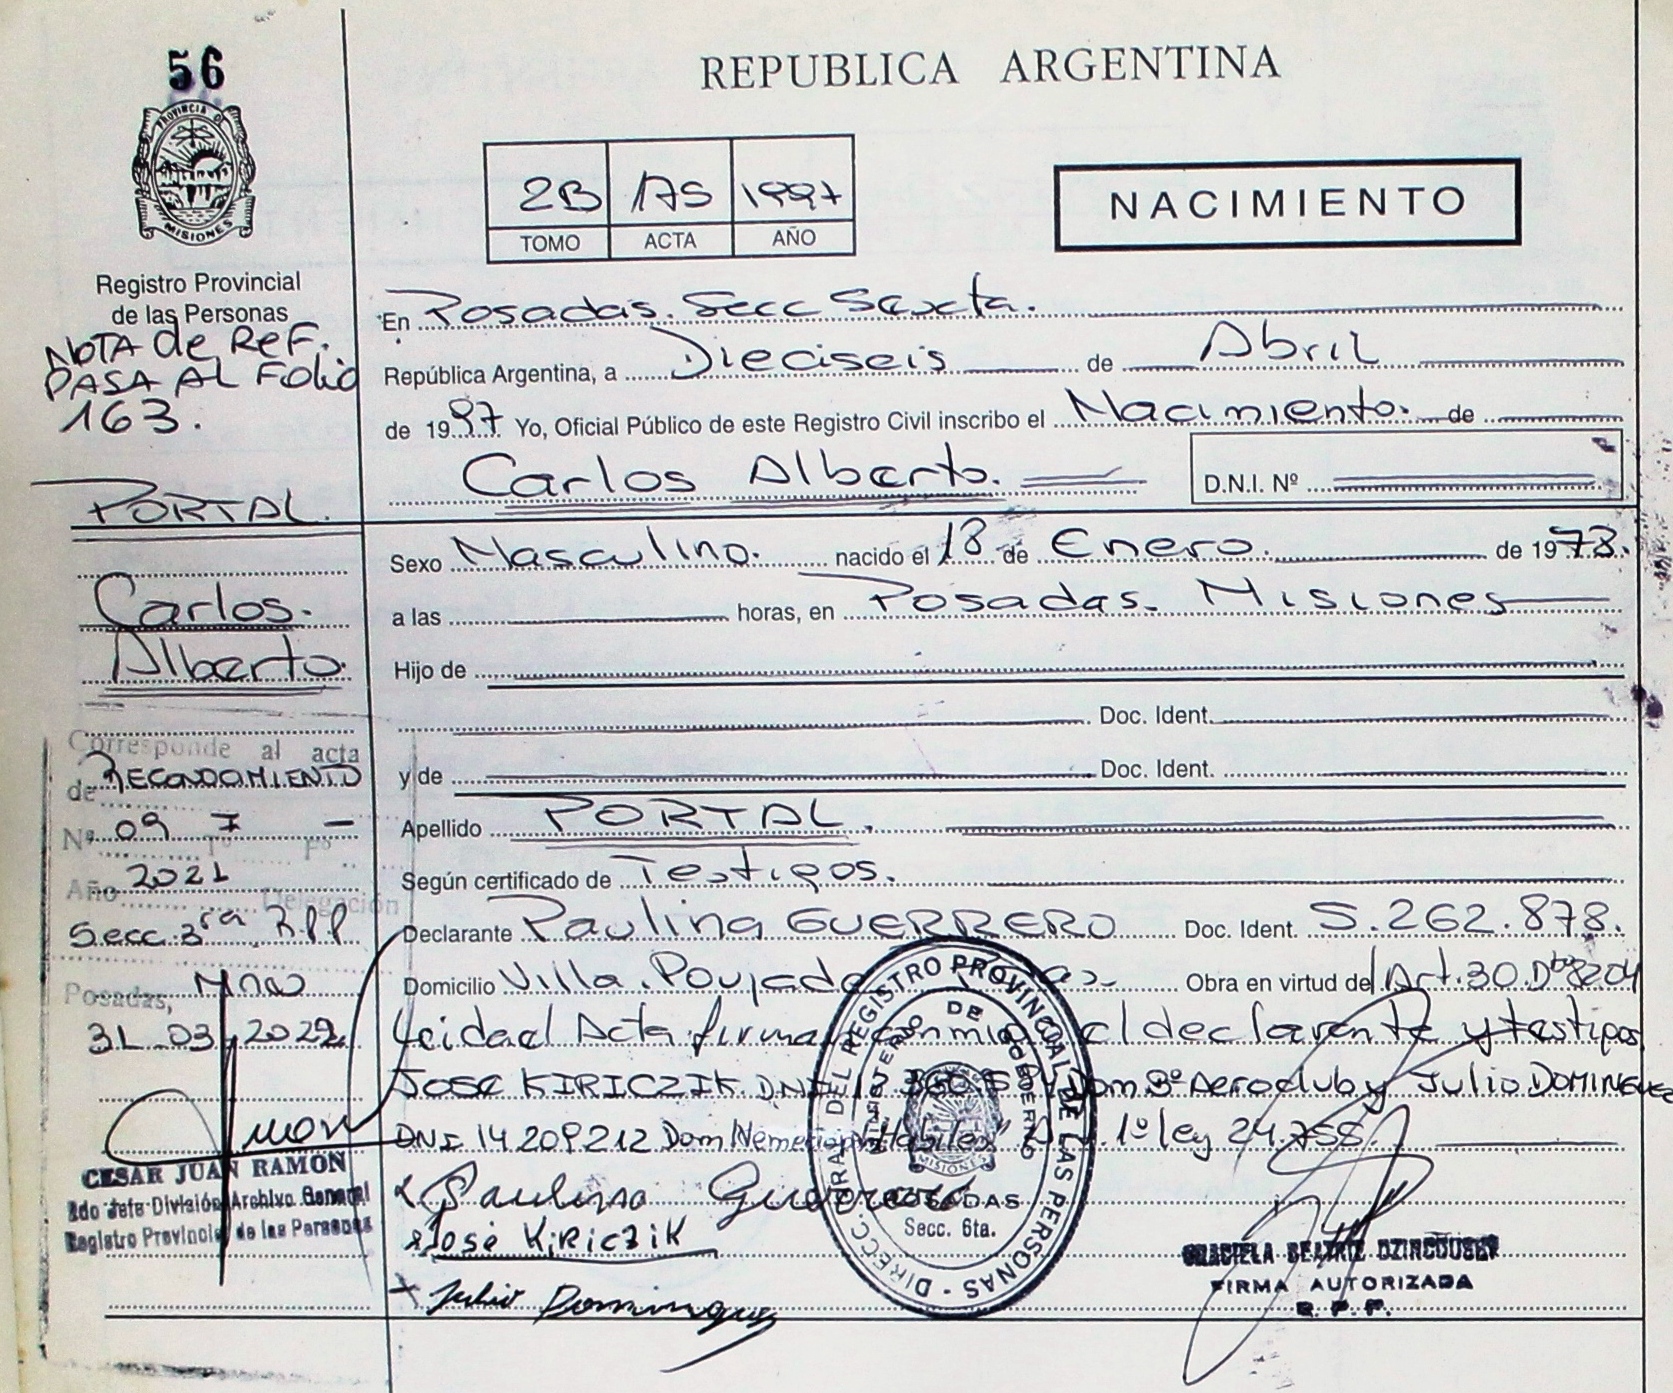 56
REPUBLICA ARGENTINA
PROVINCIA DE
MISIONES
2B 175 1997
TOMO ACTA AÑO
NACIMIENTO
Registro Provincial
de las Personas
NOTA de ReF.
PASA AL FOLIO
163.
En Posadas. Secc Sexta.
República Argentina, a Dieciseis de Abril
de 1997 Yo, Oficial Público de este Registro Civil inscribo el Nacimiento. de
Carlos Alberto. D.N.I. Nº
PORTAL.
Carlos.
Alberto.
Sexo Masculino. nacido el 18 de Enero. de 1973.
a las horas, en Posadas. Misiones
Hijo de
Doc. Ident.
y de Doc. Ident.
Apellido PORTAL.
Según certificado de Testigos.
Declarante Paulina GUERRERO Doc. Ident. 5.262.878.
Domicilio Villa. Poujade Obra en virtud del Art.30.Dto 8204
Leida el Acta firma conmigo el declarante y testigos
JOSE KIRICZIK DNI Dom Bº Aeroclub y Julio DOMINGUEZ
DNI 14.209.212 Dom Nemecio 1º ley 24.755.
Corresponde al acta
de RECONOCIMIENTO
Nº 09 Tº 7 Fº —
Año 2021 Delegación
Secc. 3ra RPP
Posadas, Mnes
31-03-2022
CESAR JUAN RAMON
2do Jefe División Archivo General
Registro Provincial de las Personas
x Paulina Guerrero
x José KIRICZIK
x Julio Dominguez
DIRECC. GRAL DEL REGISTRO PROVINCIAL DE LAS PERSONAS
MINISTERIO DE GOBIERNO
MISIONES
POSADAS
Secc. 6ta.
GRACIELA BEATRIZ
FIRMA AUTORIZADA
R. P. P.